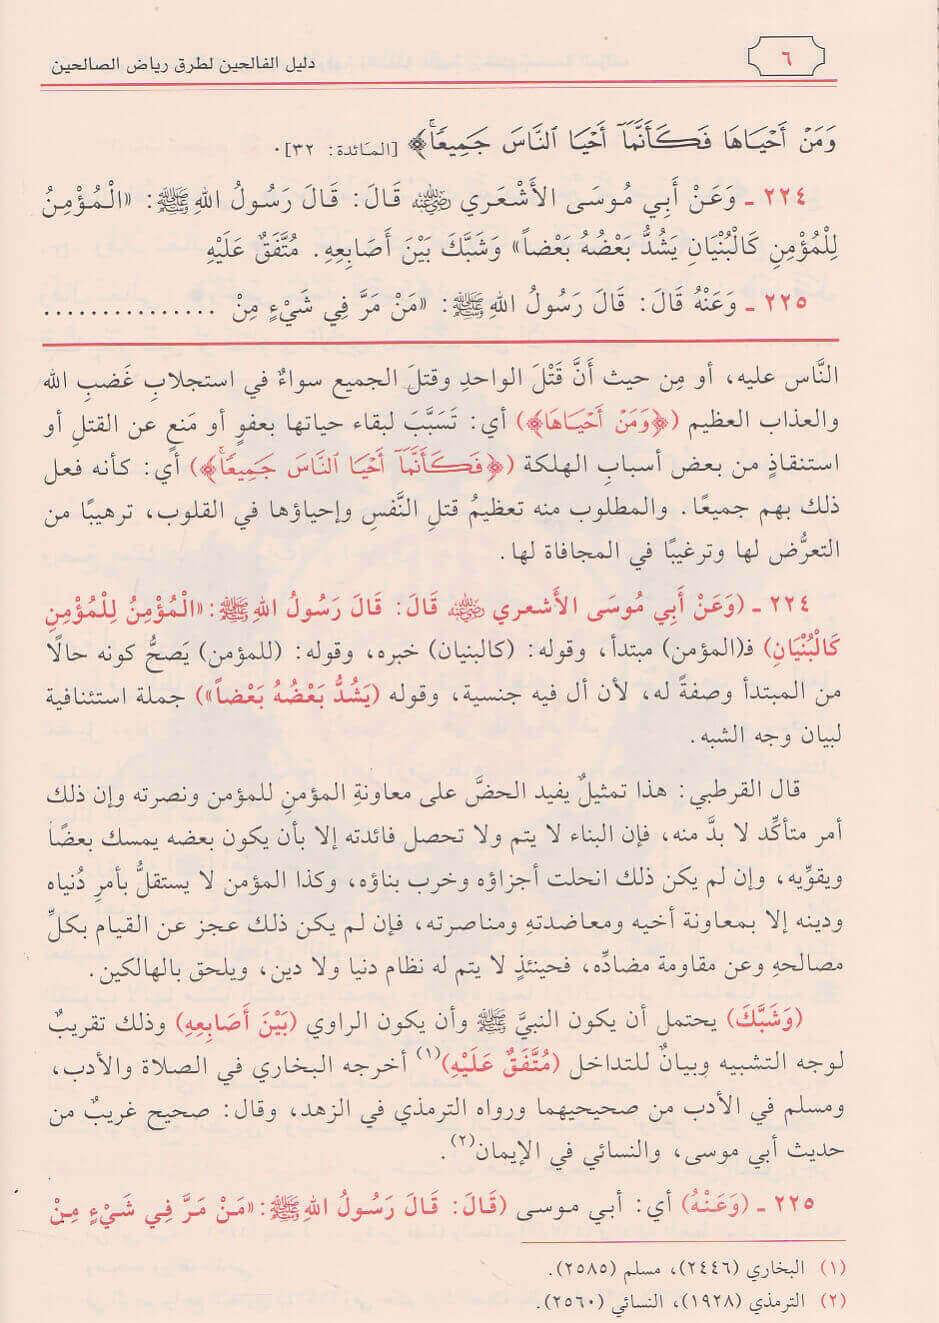 ٦
دليل الفالحين لطرق رياض الصالحين
وَمَنْ أَحْيَاهَا فَكَأَنَّمَآ أَحْيَا النَّاسَ جَمِيعًاۚ﴾ [المائدة: ٣٢].
٢٢٤ ـ وَعَنْ أَبِي مُوسَى الأَشْعَرِي رضي الله عنه قَالَ: قَالَ رَسُولُ اللهِ ﷺ: «الْمُؤْمِنُ
لِلْمُؤْمِنِ كَالْبُنْيَانِ يَشُدُّ بَعْضُهُ بَعْضاً» وَشَبَّكَ بَيْنَ أَصَابِعِهِ. مُتَّفَقٌ عَلَيْهِ
٢٢٥ ـ وَعَنْهُ قَالَ: قَالَ رَسُولُ اللهِ ﷺ: «مَنْ مَرَّ فِي شَيْءٍ مِنْ ...............
النَّاس عليه، أو مِن حيث أَنَّ قَتْلَ الواحدِ وقتلَ الجميع سواءٌ في استجلابِ غَضبِ الله
والعذاب العظيم (﴿وَمَنْ أَحْيَاهَا﴾) أي: تَسَبَّبَ لبقاء حياتها بعفوٍ أو مَنعٍ عن القتلِ أو
استنقاذٍ من بعض أسبابِ الهلكة (﴿فَكَأَنَّمَآ أَحْيَا النَّاسَ جَمِيعًاۚ﴾) أي: كأنه فعل
ذلك بهم جميعًا. والمطلوب منه تعظيمُ قتلِ النَّفسِ وإحياؤها في القلوب، ترهيبًا من
التعرُّض لها وترغيبًا في المجافاة لها.
٢٢٤ ـ (وَعَنْ أَبِي مُوسَى الأَشعري رضي الله عنه قَالَ: قَالَ رَسُولُ اللهِ ﷺ: «الْمُؤْمِنُ لِلْمُؤْمِنِ
كَالْبُنْيَانِ) فـ(المؤمن) مبتدأ، وقوله: (كالبنيان) خبره، وقوله: (للمؤمن) يَصحُّ كونه حالًا
من المبتدأ وصفةً له، لأن أل فيه جنسية، وقوله (يَشُدُّ بَعْضُهُ بَعْضاً») جملة استئنافية
لبيان وجه الشبه.
قال القرطبي: هذا تمثيلٌ يفيد الحضَّ على معاونةِ المؤمنِ للمؤمن ونصرته وإن ذلك
أمر متأكِّد لا بدَّ منه، فإن البناء لا يتم ولا تحصل فائدته إلا بأن يكون بعضه يمسك بعضًا
ويقوِّيه، وإن لم يكن ذلك انحلت أجزاؤه وخرب بناؤه، وكذا المؤمن لا يستقلُّ بأمرِ دُنياه
ودينه إلا بمعاونة أخيه ومعاضدتهِ ومناصرته، فإن لم يكن ذلك عجز عن القيام بكلِّ
مصالحهِ وعن مقاومة مضادِّه، فحينئذٍ لا يتم له نظام دنيا ولا دين، ويلحق بالهالكين.
(وَشَبَّكَ) يحتمل أن يكون النبيَّ ﷺ وأن يكون الراوي (بَيْنَ أَصَابِعِهِ) وذلك تقريبٌ
لوجه التشبيه وبيانٌ للتداخل (مُتَّفَقٌ عَلَيْهِ)(١) أخرجه البخاري في الصلاة والأدب،
ومسلم في الأدب من صحيحيهما ورواه الترمذي في الزهد، وقال: صحيح غريبٌ من
حديث أبي موسى، والنسائي في الإيمان(٢).
٢٢٥ ـ (وَعَنْهُ) أي: أبي موسى (قَالَ: قَالَ رَسُولُ اللهِ ﷺ: «مَنْ مَرَّ فِي شَيْءٍ مِنْ
(١) البخاري (٢٤٤٦)، مسلم (٢٥٨٥).
(٢) الترمذي (١٩٢٨)، النسائي (٢٥٦٠).